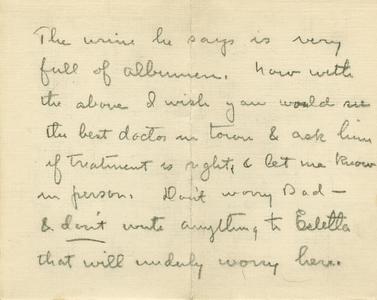 The urine he says is very
full of albumen. Now with
the above I wish you would see
the best doctor in town & ask him
if treatment is right, & let me know
in person. Don't worry Dad —
& don't write anything to Estella
that will unduly worry her.